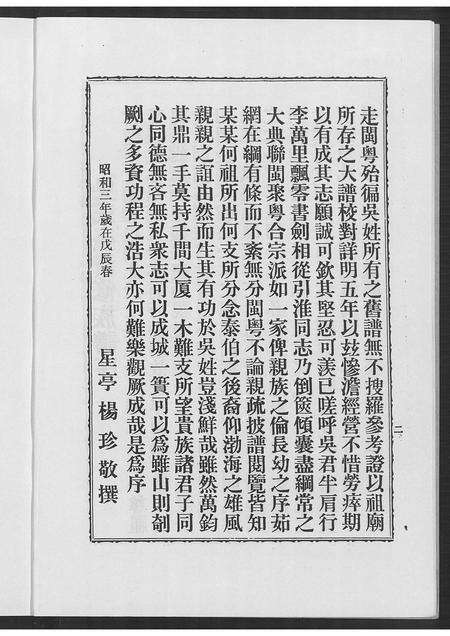 走閩粵殆徧吳姓所有之舊譜無不搜羅參考證以祖廟
所存之大譜校對詳明五年以玆慘澹經營不惜勞瘁期
以有成其志願誠可欽其堅忍可羡已嗟呼吳君半肩行
李萬里飄零書劍相從引淮同志乃倒篋傾囊盡綱常之
大典聯閩聚粵合宗派如一家俾親族之倫長幼之序茹
網在綱有條而不紊無分閩粵不論親疏披譜閱覽皆知
某某何祖所出何支所分念泰伯之後裔仰渤海之雄風
親親之誼由然而生其有功於吳姓豈淺鮮哉雖然萬鈞
其鼎一手莫持千間大厦一木難支所望貴族諸君子同
心同德無吝無私衆志可以成城一簣可以爲雖山則剞
劂之多資功程之浩大亦何難樂觀厥成哉是爲序
昭和三年歲在戊辰春
星亭楊珍敬撰
二